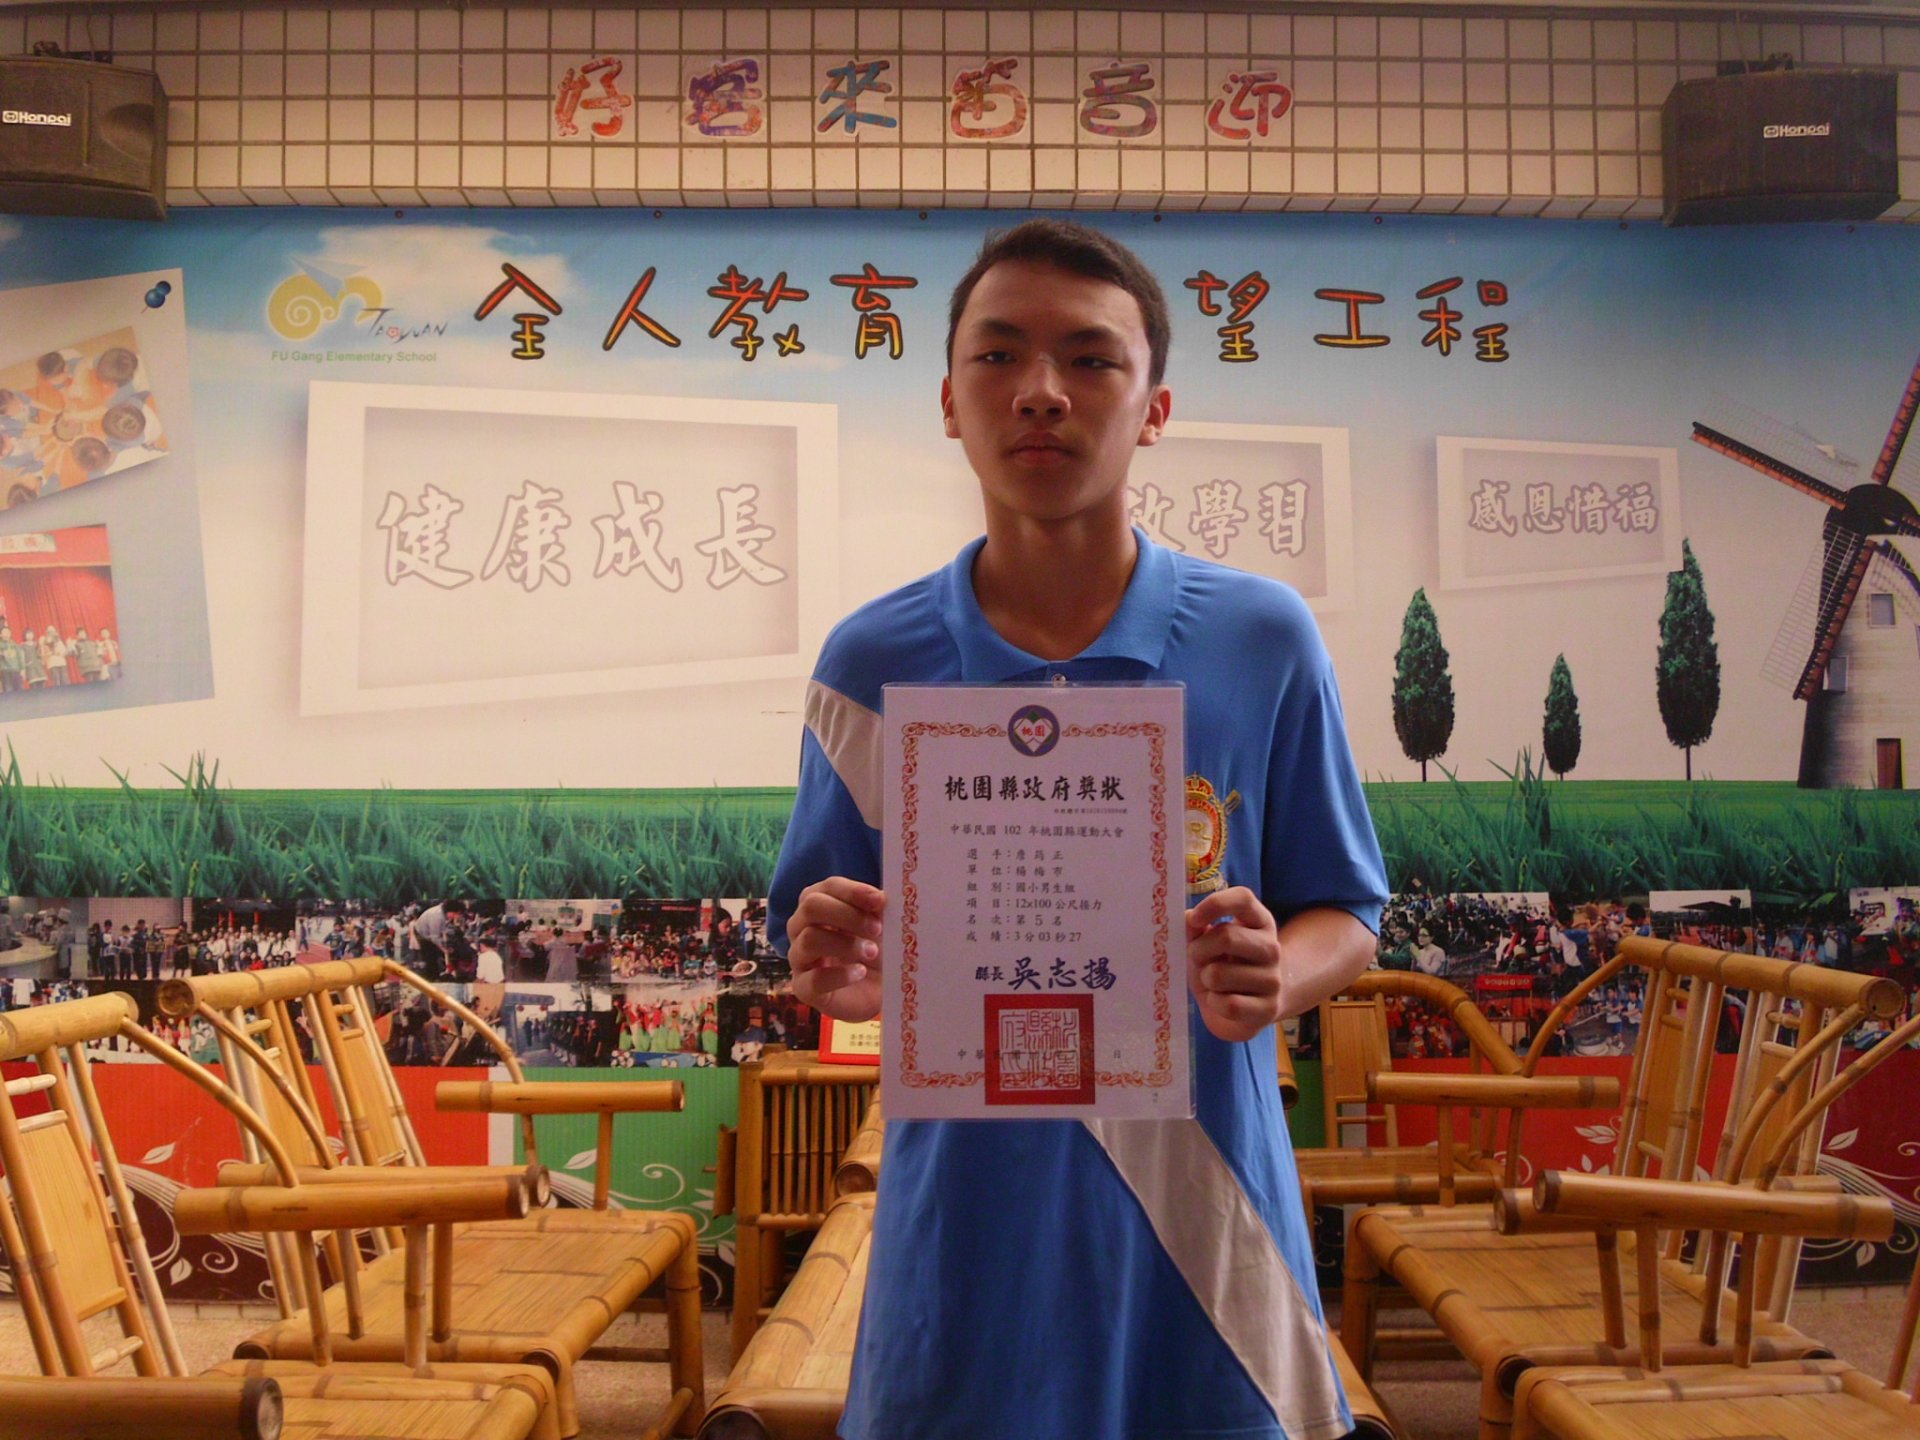 好客來笛音迎
Honpai
Honpai
全人教育 望工程
TAOYUAN
FU Gang Elementary School
健康成長
效學習
感恩惜福
桃園
桃園縣政府獎狀
中華民國 102 年桃園縣運動大會
選 手：詹 筠 正
單 位：楊 梅 市
組 別：國小男生組
項 目：12x100 公尺接力
名 次：第 5 名
成 績：3 分 03 秒 27
縣長 吳志揚
中 華 民 國 日